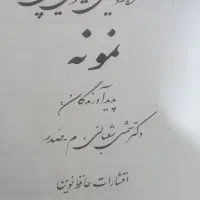 نمونه
پدیدآورندگان:
دکتر شمسی شعبانی، م-صدر
انتشارات حافظ نوین